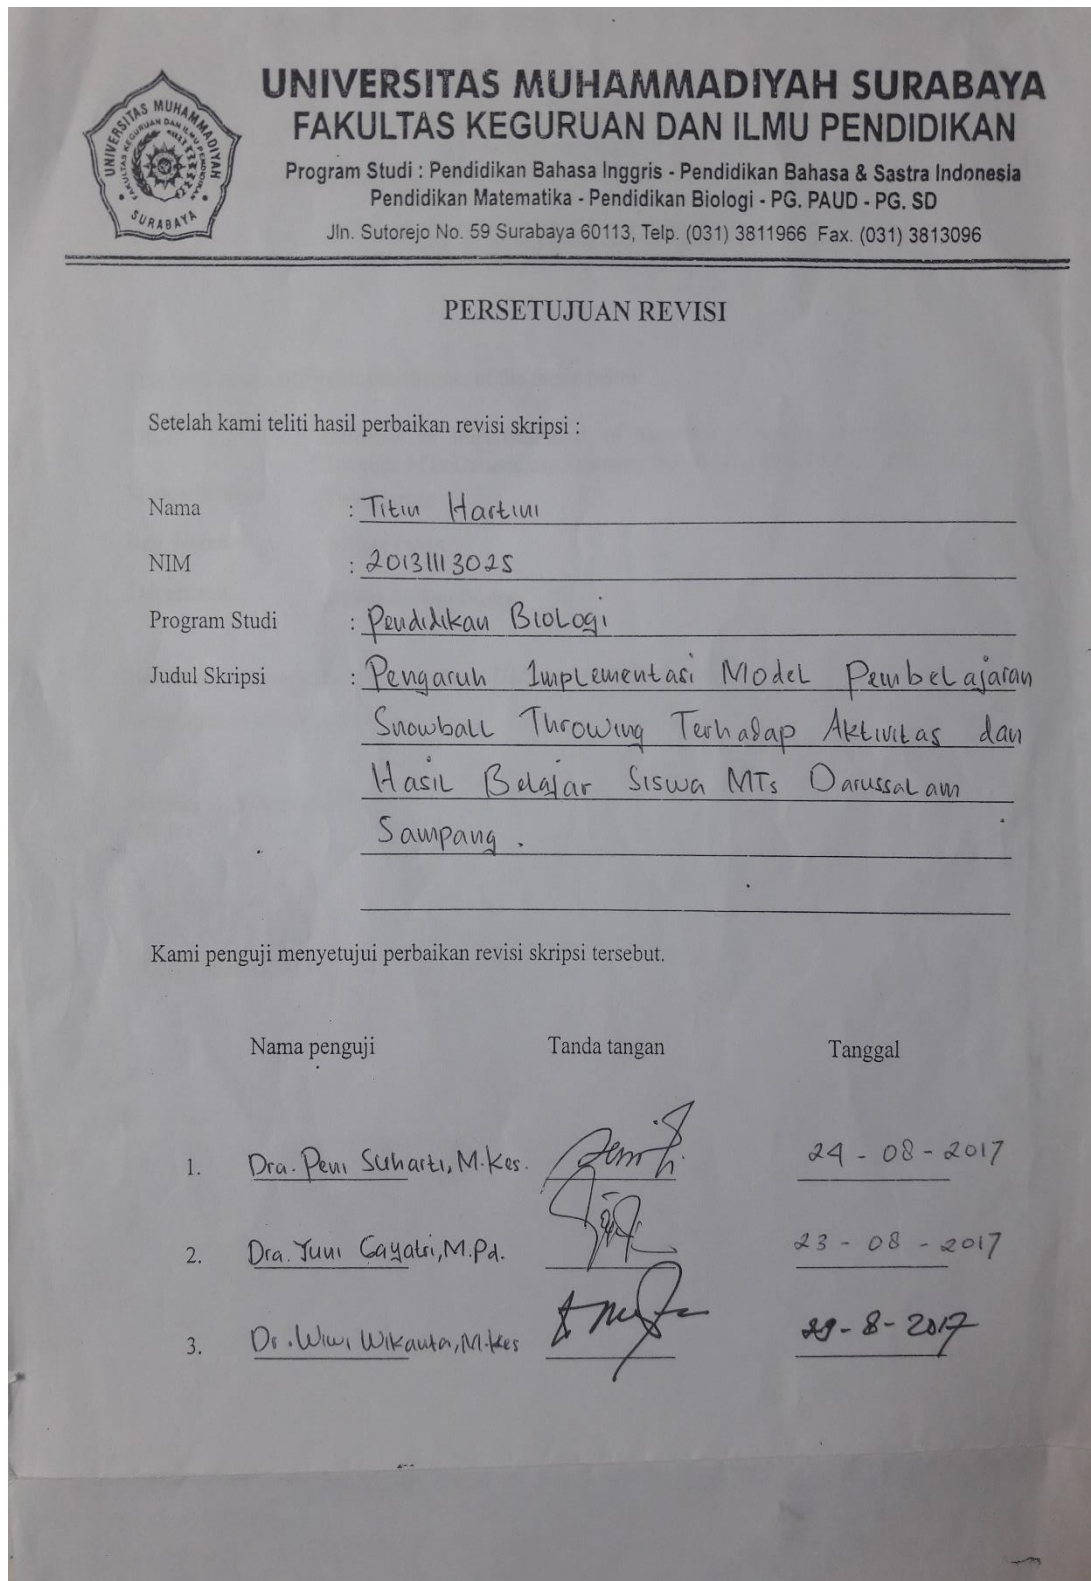 UNIVERSITAS MUHAMMADIYAH SURABAYA
FAKULTAS KEGURUAN DAN ILMU PENDIDIKAN
Program Studi : Pendidikan Bahasa Inggris - Pendidikan Bahasa & Sastra Indonesia
Pendidikan Matematika - Pendidikan Biologi - PG. PAUD - PG. SD
Jln. Sutorejo No. 59 Surabaya 60113, Telp. (031) 3811966 Fax. (031) 3813096
UNIVERSITAS MUHAMMADIYAH
FAKULTAS KEGURUAN DAN ILMU PENDIDIKAN
SURABAYA
PERSETUJUAN REVISI
Setelah kami teliti hasil perbaikan revisi skripsi :
Nama : Titin Hartini
NIM : 20131113025
Program Studi : Pendidikan Biologi
Judul Skripsi : Pengaruh Implementasi Model Pembelajaran
Snowball Throwing Terhadap Aktivitas dan
Hasil Belajar Siswa MTs Darussalam
Sampang .
Kami penguji menyetujui perbaikan revisi skripsi tersebut.
Nama penguji Tanda tangan Tanggal
1. Dra. Peni Suharti, M.Kes. 24 - 08 - 2017
2. Dra. Yuni Gayatri, M.Pd. 23 - 08 - 2017
3. Dr. Wiwi Wikanta, M.Kes 29-8-2017